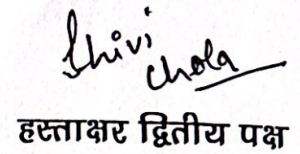 Shivi
Chola
हस्ताक्षर द्वितीय पक्ष